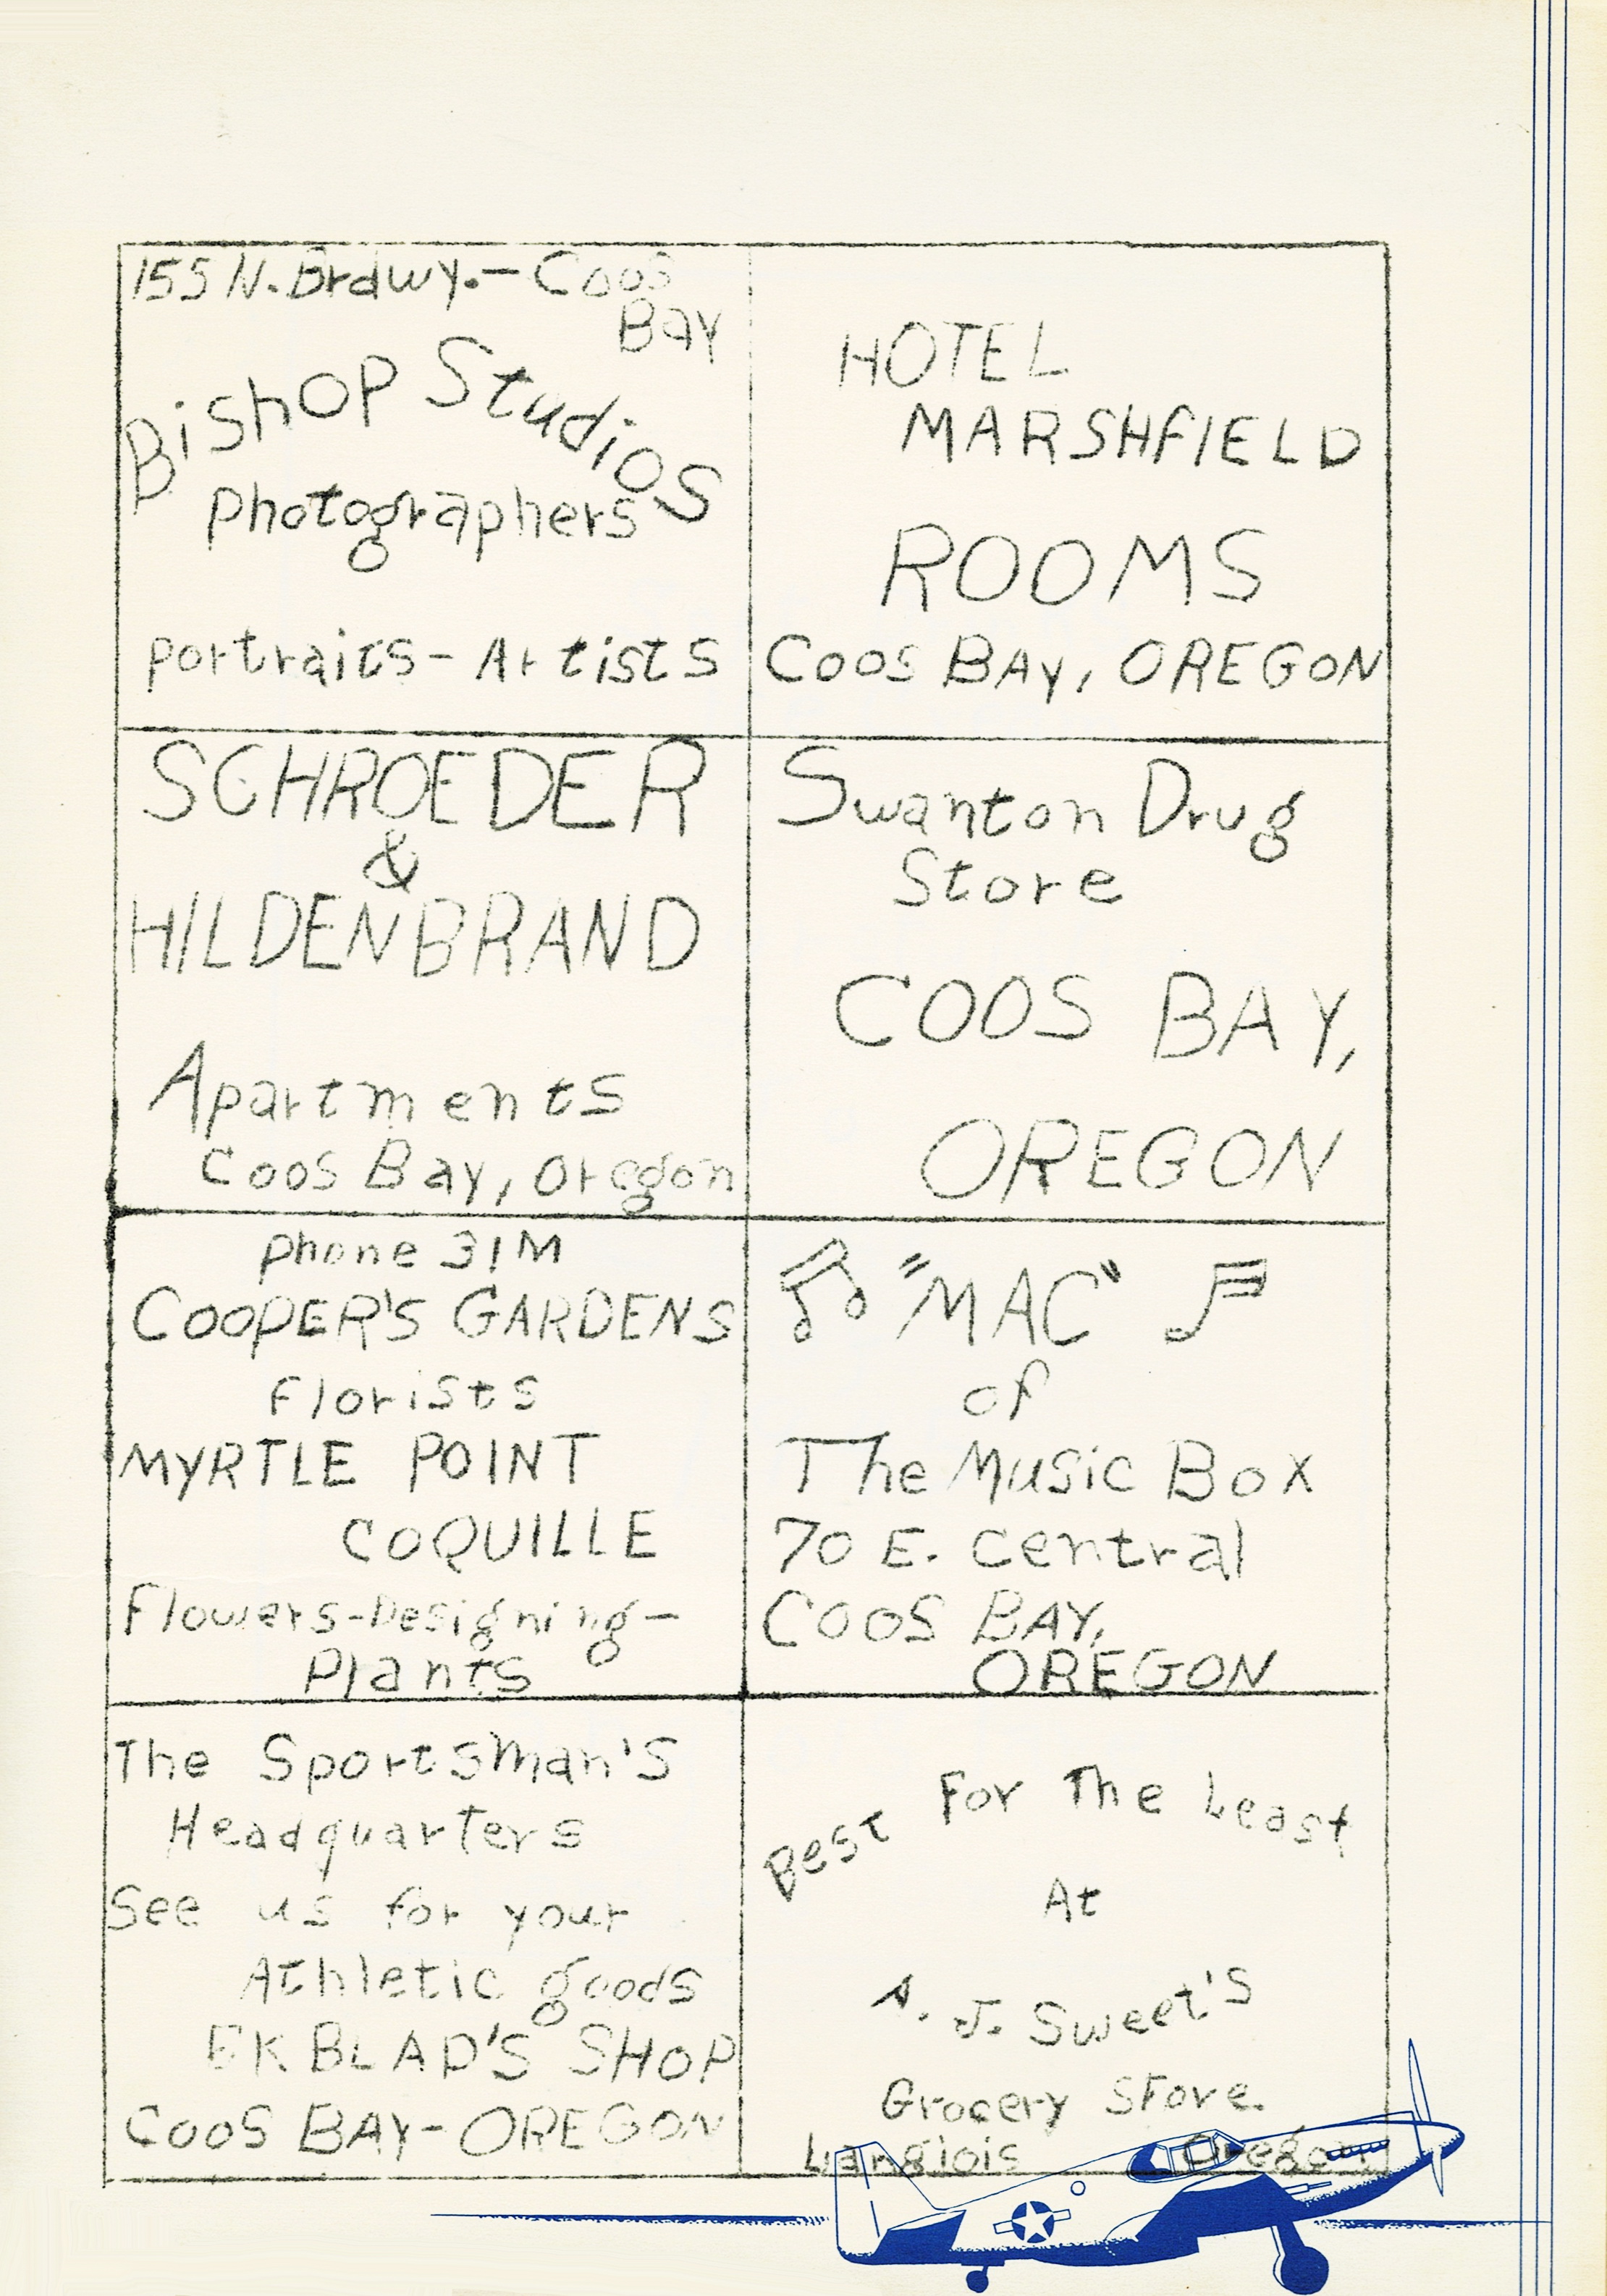 155 N. Brdwy. - Coos
Bay
Bishop Studios
Photographers
Portraits - Artists
HOTEL
MARSHFIELD
ROOMS
COOS BAY, OREGON
SCHROEDER
&
HILDENBRAND
Apartments
Coos Bay, Oregon
Swanton Drug
Store
COOS BAY,
OREGON
Phone 31M
COOPER'S GARDENS
Florists
MYRTLE POINT
COQUILLE
Flowers-Designing-
Plants
"MAC"
of
The Music Box
70 E. Central
COOS BAY,
OREGON
The Sportsman's
Headquarters
See us for your
Athletic goods
EKBLAD'S SHOP
COOS BAY - OREGON
Best For The Least
At
A. J. Sweet's
Grocery Store.
Langlois Oregon